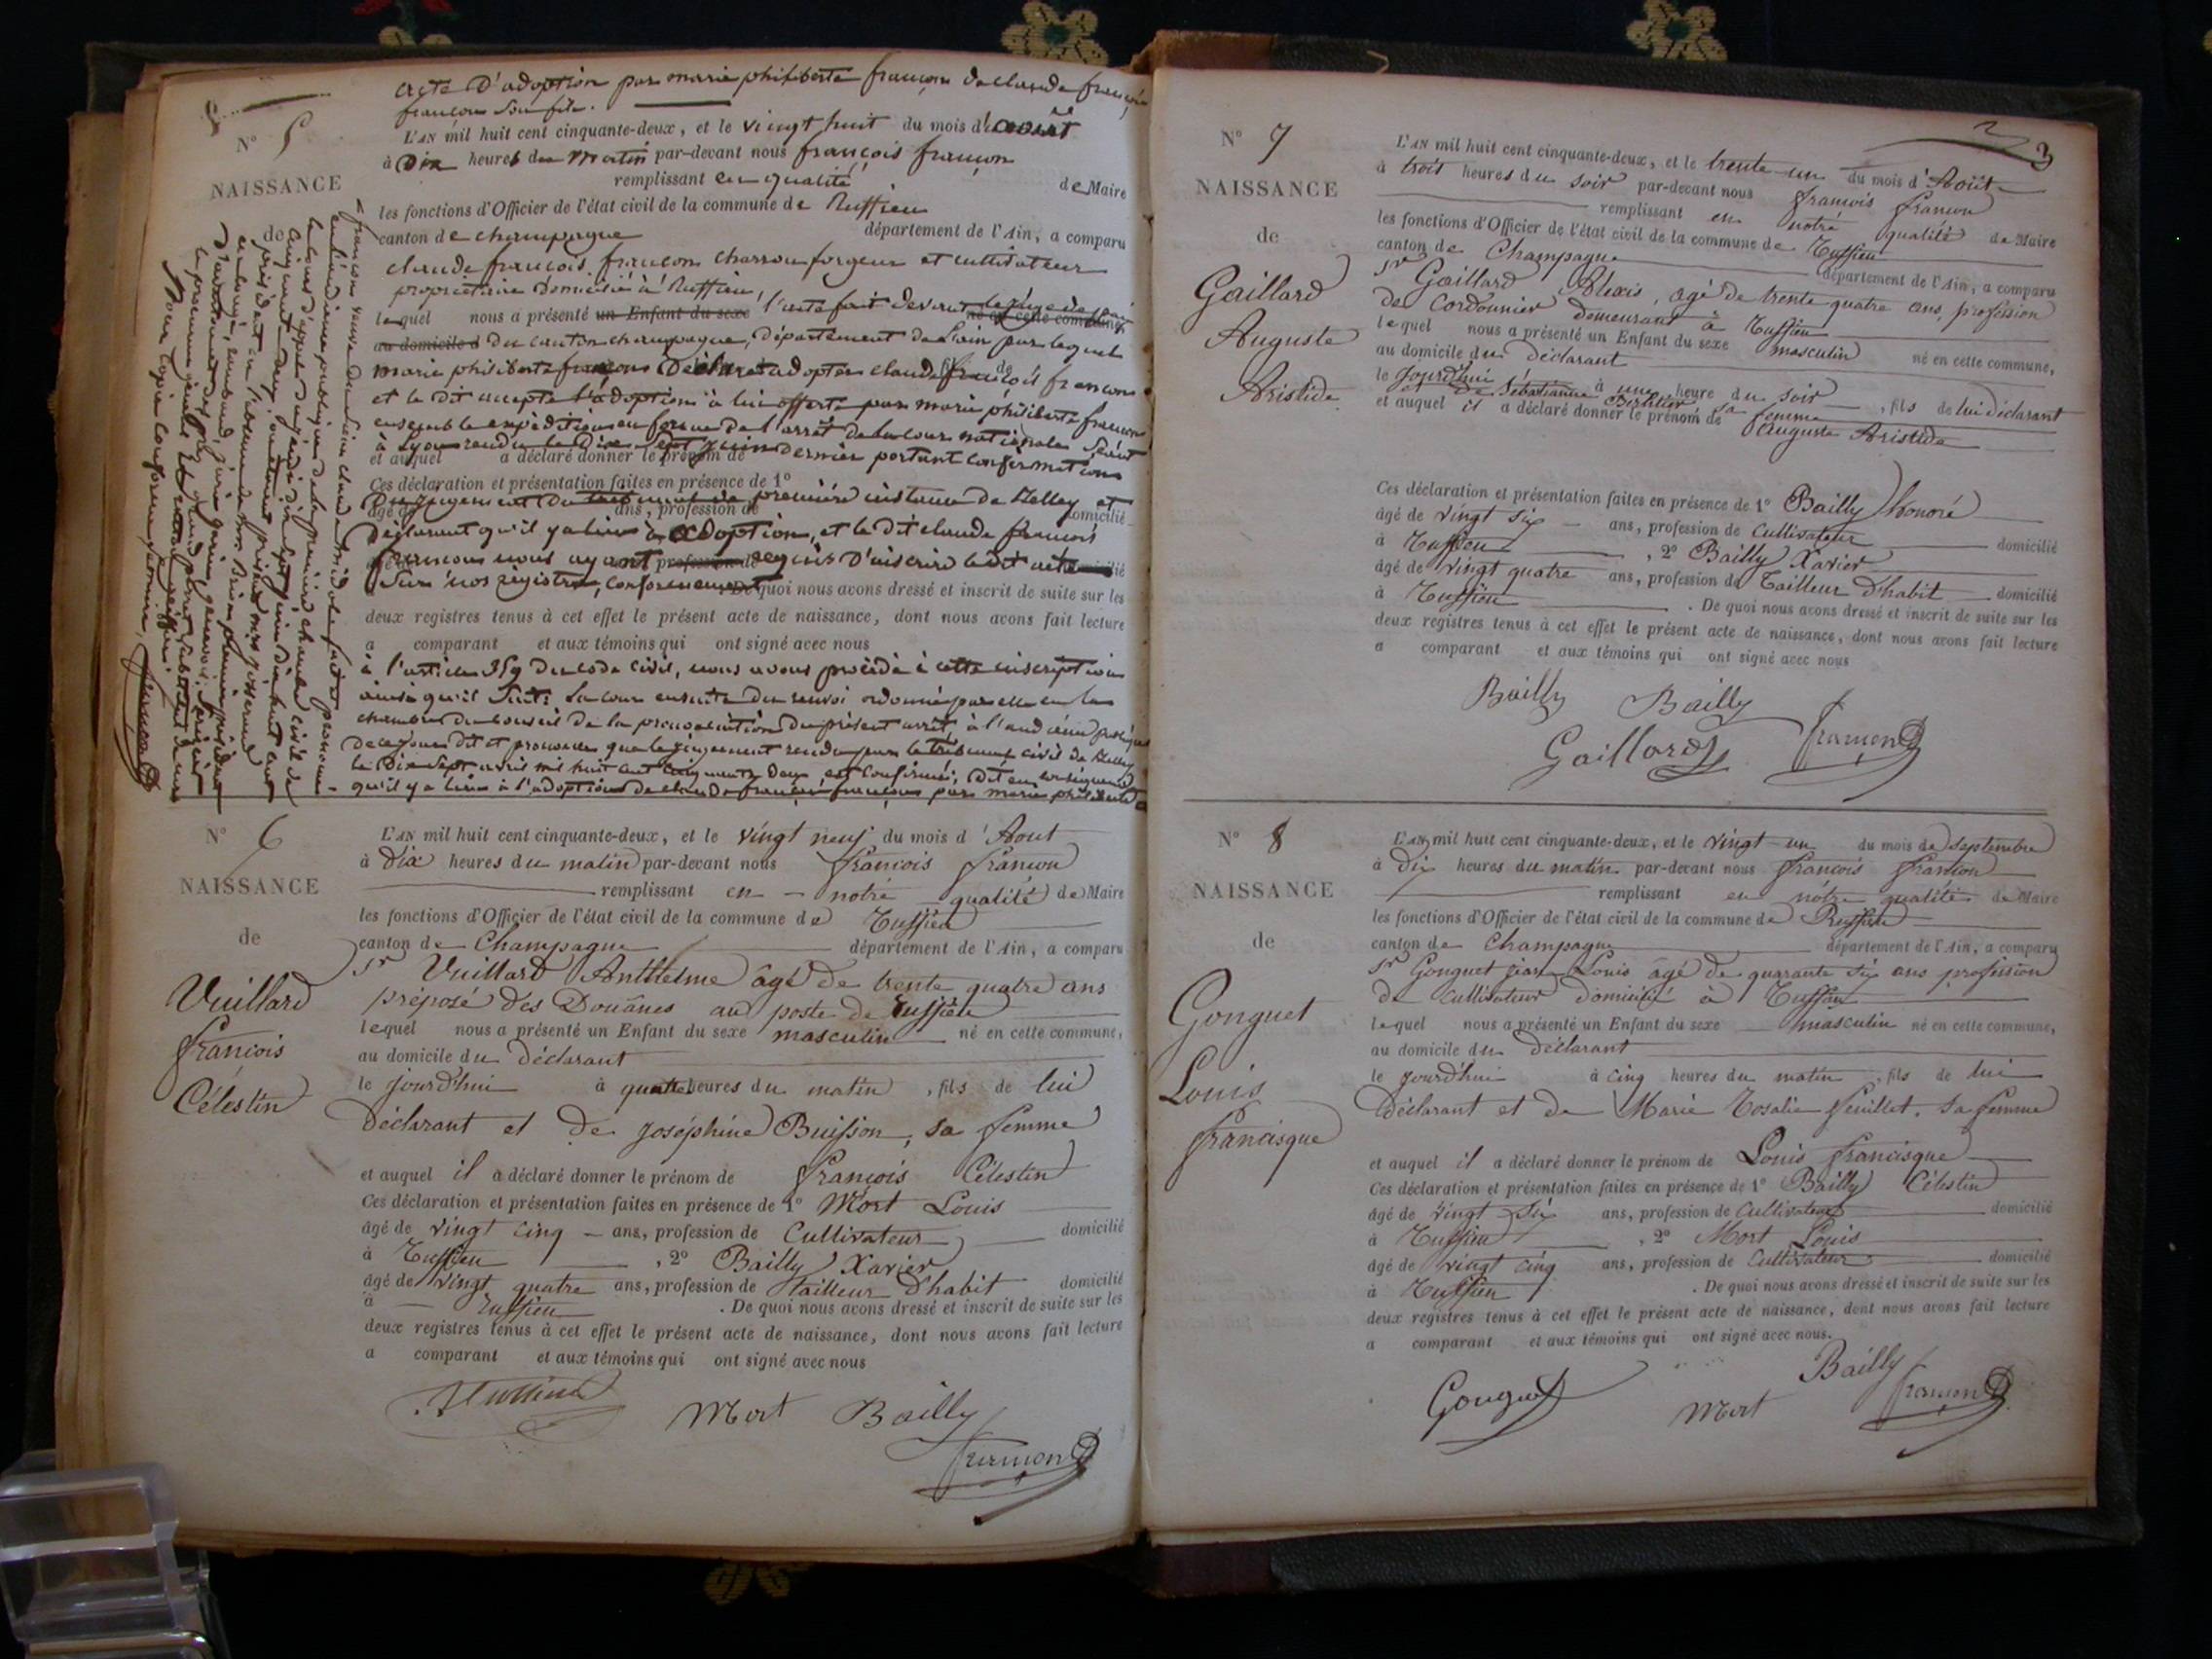 acte d'adoption par marie philiberte françon de claude françois
françon son fils.
N° 5
NAISSANCE
de
L'AN mil huit cent cinquante-deux, et le vingt huit du mois d'août
à Dix heures du matin par-devant nous françois françon
remplissant en qualité de Maire
les fonctions d'Officier de l'état civil de la commune de Ruffieu
canton de champagne département de l'Ain, a comparu
claude francois françon charron forgeur et cultivateur
propriétaire domicilié à Ruffieu,
lequel nous a présenté un Enfant du sexe l'acte fait devant le juge de paix né en cette commune,
au domicile d du canton champagne, département de l'ain par lequel
marie philiberte françon Déclare adopter claude françois françon
et le dit accepte l'adoption à lui offerte par marie philiberte françon
ensemble expédition en forme de l'arrêt de la cour nationale séant
à Lyon rendu le Dix sept juin dernier portant confirmation
et auquel a déclaré donner le prénom de
Ces déclaration et présentation faites en présence de 1°
Du jugement du tribunal de première instance de Belley et
âgé de ans, profession de domicilié
Déclarant qu'il y a lieu à adoption, et le dit claude francois
françon nous ayant requis D'inscrire le dit acte
sur nos registres, conformement De quoi nous avons dressé et inscrit de suite sur les
deux registres tenus à cet effet le présent acte de naissance, dont nous avons fait lecture
a comparant et aux témoins qui ont signé avec nous
à l'article 359 du code civil, nous avons procédé à cette inscription
ainsi qu'il suit: La cour ensuite du renvoi ordonné par elle en la
chambre du conseil de la prononciation du présent arrêt, à l'audience publique
de ce jour dit et prononce que le jugement rendu par le tribunal civil de Belley
le Dix sept avril mil huit cent cinquante Deux, est confirmé; Dit en conséquence
qu'il y a lieu à l'adoption de claude françois françon par marie philiberte
françon veuve de
en l'audience publique de la première chambre civile de
la cour d'appel
cinquante deux
Pour copie conforme,
françon
N° 6
NAISSANCE
de
Vuillard
françois
Célestin
L'AN mil huit cent cinquante-deux, et le vingt neuf du mois d'Aout
à dix heures du matin par-devant nous françois françon
remplissant en notre qualité de Maire
les fonctions d'Officier de l'état civil de la commune de Ruffieu
canton de Champagne département de l'Ain, a comparu
Sr Vuillard Anthelme âgé de trente quatre ans
préposé des Douânes au poste de Ruffieu
lequel nous a présenté un Enfant du sexe masculin né en cette commune,
au domicile du Déclarant
le jourd'hui à quatre heures du matin, fils de lui
Déclarant et de Joséphine Buisson, sa femme
et auquel il a déclaré donner le prénom de françois Célestin
Ces déclaration et présentation faites en présence de 1° Mort Louis
âgé de vingt cinq ans, profession de Cultivateur domicilié
à Ruffieu, 2° Bailly Xavier
âgé de vingt quatre ans, profession de tailleur d'habit domicilié
à Ruffieu. De quoi nous avons dressé et inscrit de suite sur les
deux registres tenus à cet effet le présent acte de naissance, dont nous avons fait lecture
a comparant et aux témoins qui ont signé avec nous
Mort Bailly
françon
3
N° 7
NAISSANCE
de
Gaillard
Auguste
Aristide
L'AN mil huit cent cinquante-deux, et le trente-un du mois d'Août
à trois heures du soir par-devant nous françois françon
remplissant en notre qualité de Maire
les fonctions d'Officier de l'état civil de la commune de Ruffieu
canton de Champagne département de l'Ain, a comparu
Sr Gaillard Alexis, agé de trente quatre ans, profession
de Cordonnier demeurant à Ruffieu
lequel nous a présenté un Enfant du sexe masculin né en cette commune,
au domicile du Déclarant
le jourd'hui à une heure du soir, fils de lui déclarant
de Sébastianne sa femme
et auquel il a déclaré donner le prénom de Auguste Aristide
Ces déclaration et présentation faites en présence de 1° Bailly honoré
âgé de vingt six ans, profession de Cultivateur domicilié
à Ruffieu, 2° Bailly Xavier
âgé de vingt quatre ans, profession de tailleur d'habit domicilié
à Ruffieu. De quoi nous avons dressé et inscrit de suite sur les
deux registres tenus à cet effet le présent acte de naissance, dont nous avons fait lecture
a comparant et aux témoins qui ont signé avec nous
Bailly Bailly
Gaillard françon
N° 8
NAISSANCE
de
Gonguet
Louis
francisque
L'AN mil huit cent cinquante-deux, et le vingt-un du mois de septembre
à dix heures du matin par-devant nous françois françon
remplissant en nôtre qualité de Maire
les fonctions d'Officier de l'état civil de la commune de Ruffieu
canton de Champagne département de l'Ain, a comparu
Sr Gonguet jean Louis âgé de quarante six ans profession
de cultivateur domicilié à Ruffieu
lequel nous a présenté un Enfant du sexe masculin né en cette commune,
au domicile du Déclarant
le jourd'hui à cinq heures du matin, fils de lui
Déclarant et de Marie Rosalie feuillet, sa femme
et auquel il a déclaré donner le prénom de Louis francisque
Ces déclaration et présentation faites en présence de 1° Bailly Célestin
âgé de vingt six ans, profession de Cultivateur domicilié
à Ruffieu, 2° Mort Louis
âgé de vingt cinq ans, profession de Cultivateur domicilié
à Ruffieu. De quoi nous avons dressé et inscrit de suite sur les
deux registres tenus à cet effet le présent acte de naissance, dont nous avons fait lecture
a comparant et aux témoins qui ont signé avec nous.
Bailly
Gonguet Mort françon